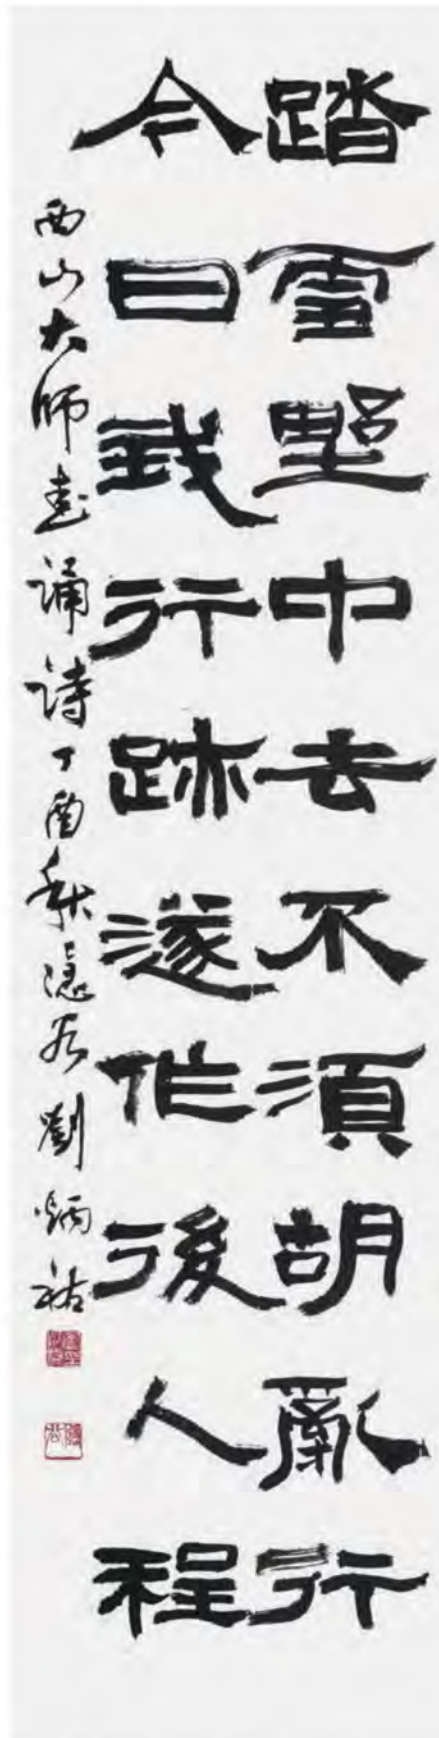 踏雪野中去不須胡亂行
今日我行跡遂作後人程
西山大師愛誦詩丁酉秋谷劉炳祐